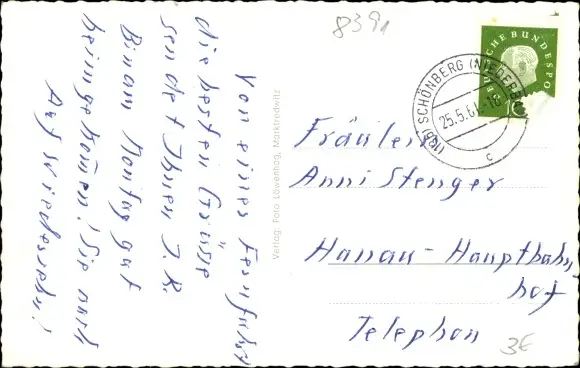 Von einer Fernfahrt
die besten Grüsse
sendet Ihnen J. K.
Bin am Montag gut
heimgekommen! Sie auch
Auf Wiedersehn!
8391
Verlag: Foto Löwenhag, Marktredwitz
DEUTSCHE BUNDESPOST
(13b) SCHÖNBERG (NIEDERB
25.5.61.-16
c
Fräulein
Anni Stenger
Hanau-Hauptbahn
hof
Telephon
3E